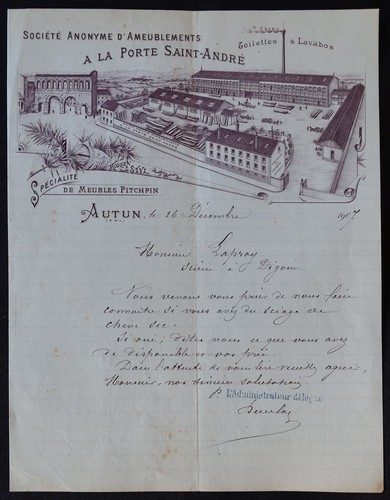 SOCIÉTÉ ANONYME D'AMEUBLEMENTS
A LA PORTE SAINT-ANDRÉ
Toilettes & Lavabos
SPÉCIALITÉ
DE MEUBLES PITCHPIN
AUTUN, le 16 Décembre 1907
Monsieur Lapray
Scierie à Digoin
Nous venons vous prier de nous faire
connaître si vous avez du sciage de
chêne sec.
Si oui, dites nous ce que vous avez
de disponible et vos prix.
Dans l'attente de vous lire veuillez agréer,
Monsieur, nos sincères salutations.
P. L'Administrateur délégué